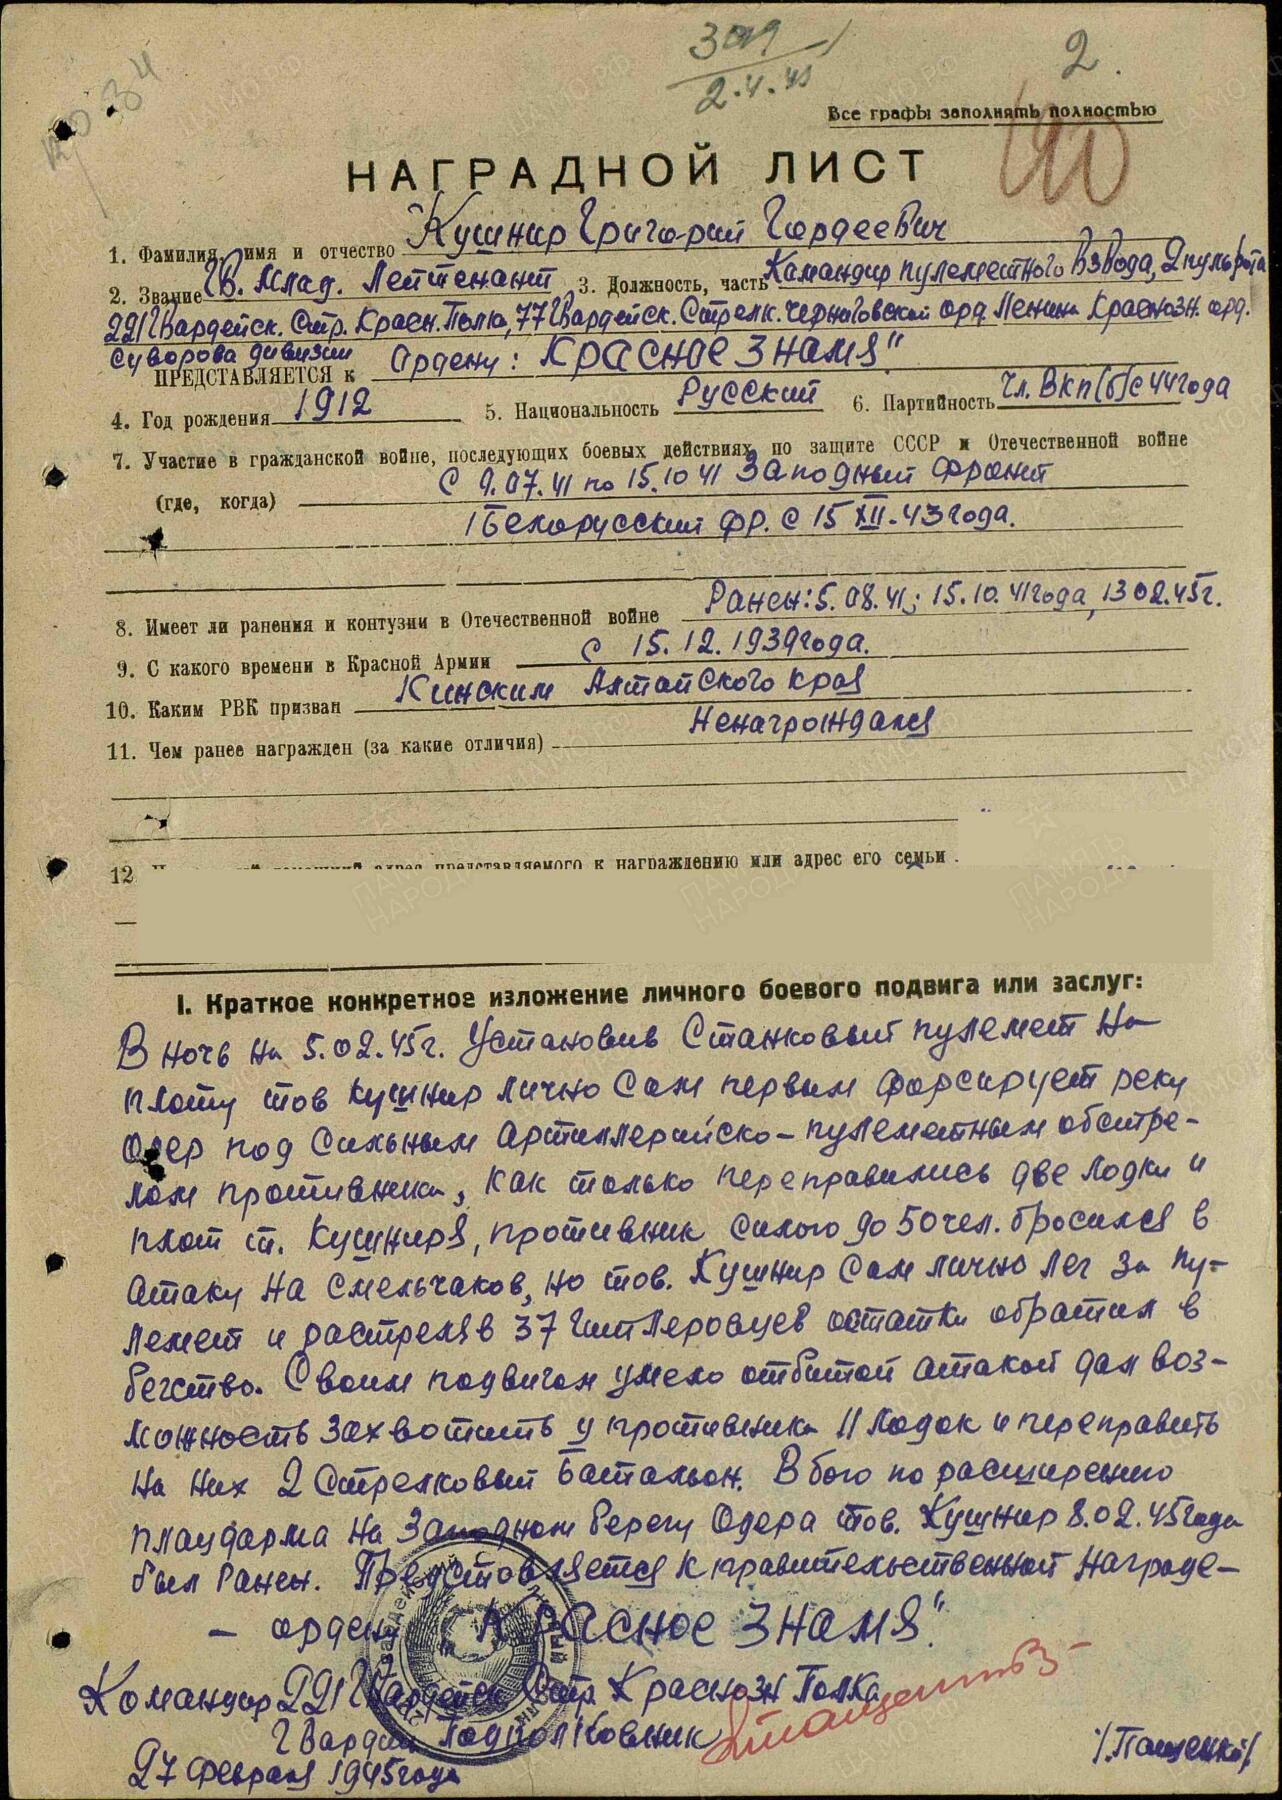 309
2.4.45
2.
Все графы заполнять полностью
НАГРАДНОЙ ЛИСТ
1. Фамилия, имя и отчество Кушнир Григорий Гордеевич
2. Звание Гв. Млад. Лейтенант 3. Должность, часть Командир пулеметного Взвода, 2 пульрота
221 Гвардейск. Стр. Красн. Полка, 77 Гвардейск. Стрелк. Черниговской орд. Ленина Краснозн. орд.
Суворова дивизии
ПРЕДСТАВЛЯЕТСЯ к Ордену: "Красное Знамя"
4. Год рождения 1912 5. Национальность Русский 6. Партийность Чл. ВКП(б) с 44 года
7. Участие в гражданской войне, последующих боевых действиях по защите СССР и Отечественной войне
(где, когда) С 9.07.41 по 15.10 41 Западный фронт
1 Белорусский фр. с 15 XII-43 года.
8. Имеет ли ранения и контузии в Отечественной войне Ранен: 5.08.41; 15.10.41 года, 13 02.45 г.
9. С какого времени в Красной Армии с 15.12.1939 года.
10. Каким РВК призван Кинским Алтайского края
11. Чем ранее награжден (за какие отличия) Ненагрождался
12. адрес представляемого к награждению или адрес его семьи
I. Краткое конкретное изложение личного боевого подвига или заслуг:
В ночь на 5.02.45 г. Установив Станковый пулемет на
плоту тов Кушнир лично Сам первым форсирует реку
Одер под Сильным артиллерийско-пулеметным обстре-
лом противника, как только переправились две лодки и
плот т. Кушниря, противник силою до 50 чел. бросился в
атаку на смельчаков, но тов. Кушнир Сам лично лег за пу-
лемет и растреляв 37 Гитлеровцев остатки обратил в
бегство. Своим подвигом умело отбитой атакой дал воз-
можность захвотить у противника 11 лодок и переправить
на них 2 Стрелковый Батальон. В бою по расширению
плацдарма на Западном берегу Одера тов. Кушнир 8.02.45 года
был Ранен. Представляется к правительственной награде-
- орден "Красное Знамя".
Командир 221 Гвардейск Стр. Краснозн Полка
Гвардии Подполковник /Пащенко/
27 февраля 1945 года